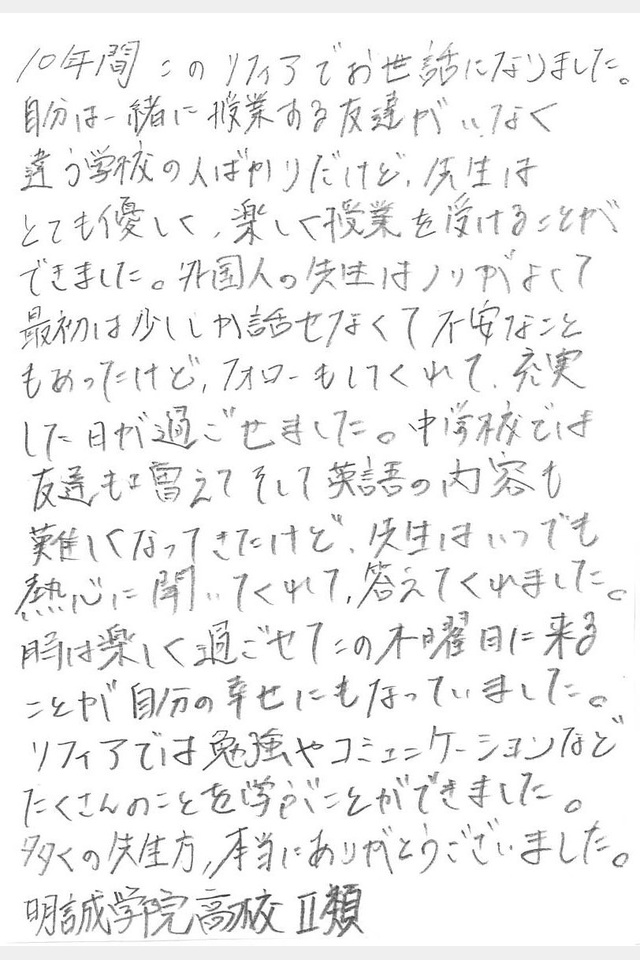 10年間このリフィアでお世話になりました。
自分は一緒に授業する友達がいなく
違う学校の人ばかりだけど、先生は
とても優しく、楽しく授業を受けることが
できました。外国人の先生はノリがよくて
最初は少ししか話せなくて不安なこと
もあったけど、フォローもしてくれて、充実
した日が過ごせました。中学校では
友達も増えてそして英語の内容も
難しくなってきたけど、先生はいつでも
熱心に聞いてくれて、答えてくれました。
時は楽しく過ごせてこの木曜日に来る
ことが自分の幸せにもなっていました。
リフィアでは勉強やコミュニケーションなど
たくさんのことを学ぶことができました。
多くの先生方、本当にありがとうございました。
明誠学院高校 Ⅱ類